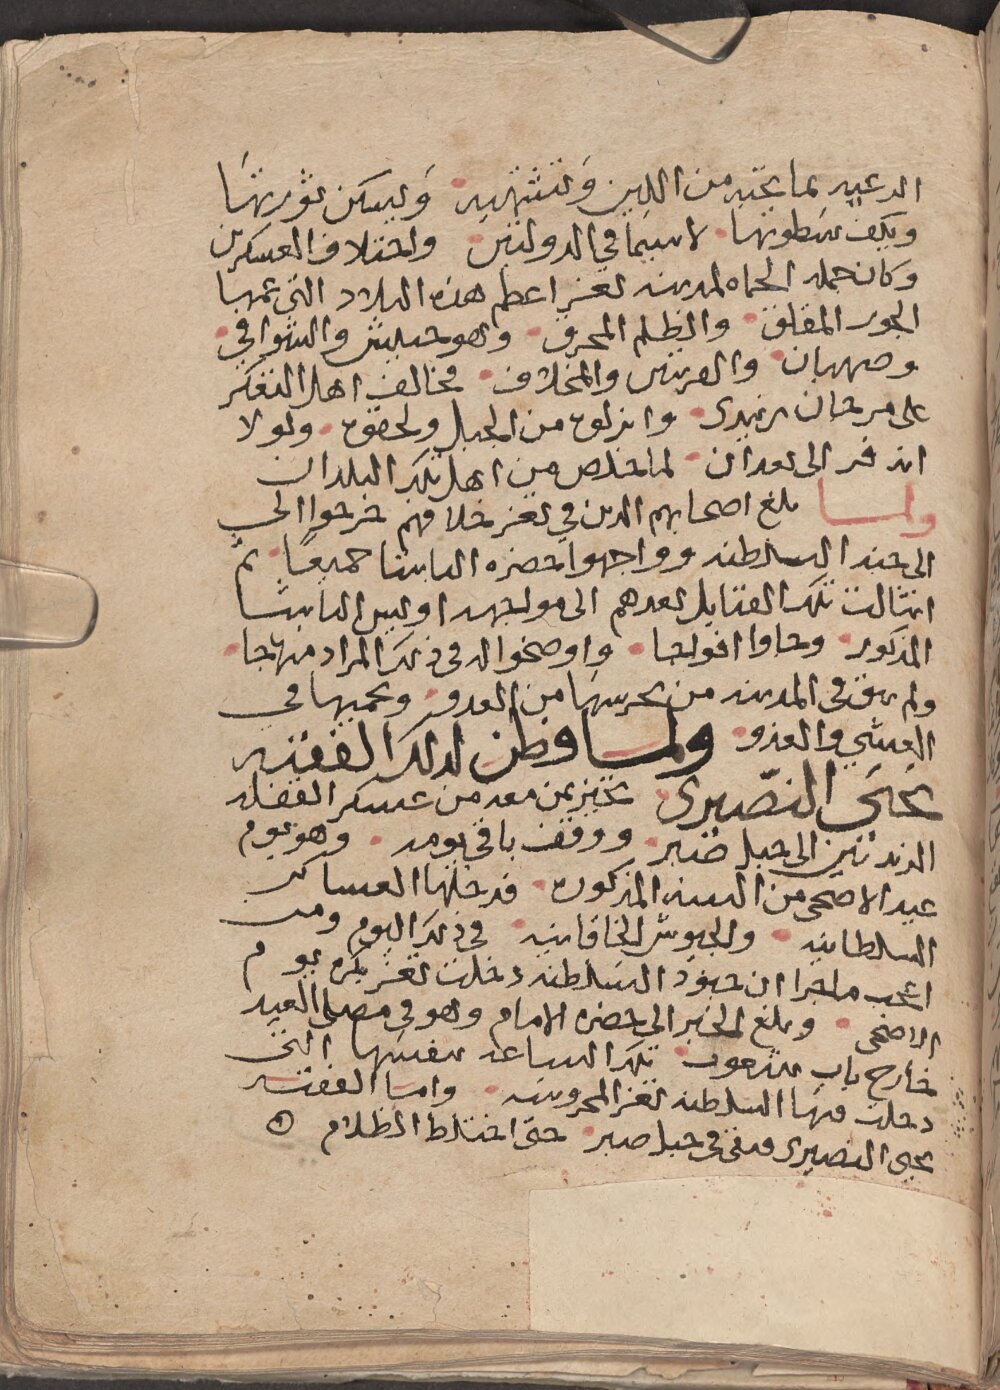 الرعيه بما يحبه من اللين وتشتهيه وليسكن ثورتها
ويكف سطوتها لاسيما في الدولتين واختلاف العسكرين
وكان جمله الحماه لمدينه تعز اعظم هذه البلاد التي عمها
الجور المقلق والظلم المحرق وهو حبيش والشوافي
وصهبان والعربتين والمخلاف فخالف اهل التعكر
على مرجان زبيدي وانزلوه من الجبل ولحقوه ولولا
انه فر الى بعدان لما خلص من اهل تلك البلدان
ولما بلغ اصحابهم الدين في تعز خلافهم خرجوا الى
الى جند السلطنه وواجهوا حضره الباشا جميعا ثم
انثالت تلك القبايل بعدهم الى مواجهه اويس الباشا
المذكور وجاوا افواجا واوضحوا له في ذلك المراد منهاجا
ولم يبق في المدينه من يحرسها من العدو ويحميها في
العشي والغدو ولما فطن لذلك الفقيه
يحيى النصيري تحيز بمن معه من عسكر القفله
الزيديين الى جبل صبر ووقف باقي يومه وهو يوم
عيد الاضحى من السنه المذكوره فدخلها العساكر
السلطانيه والجيوش الخاقانيه في ذلك اليوم ومن
اعجب ماجرا ان جنود السلطنه دخلت تعز بكره يوم
الاضحى وبلغ الخبر الى حضره الامام وهو في مصلى العيد
خارج باب تلك الساعه بنفسها التي
دخلت فيها السلطنه تعز المحروسه واما الفقيه
يحيى النصيري فبقي في جبل صبر حتى اختلط الظلام